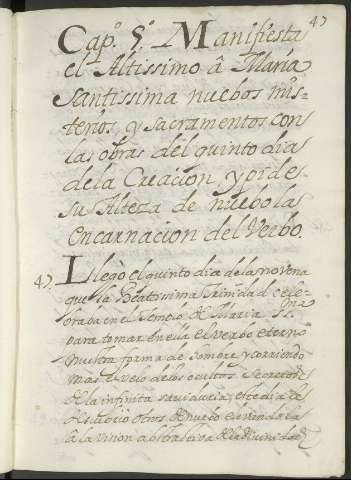 47
Capº. 5º. Manifiesta
el Altissimo â Maria
Santissima nuebos mis-
terios, y sacramentos con
las obras del quinto dia
de la Creacion, y pide
su Alteza de nuebo la
encarnacion del Verbo.
47. Llegò el quinto dia de la novena
que la Beatissima Trinidad cele-
braba en el Templo de Maria SSma
para tomar en ella el verbo eterno
nuestra forma de hombre y corriendo
mas el velo de los ocultos secretos
de la infinita sauiduria, este dia le
descubrio otros de nuebo
â la vision abstractiva de la Divinidad